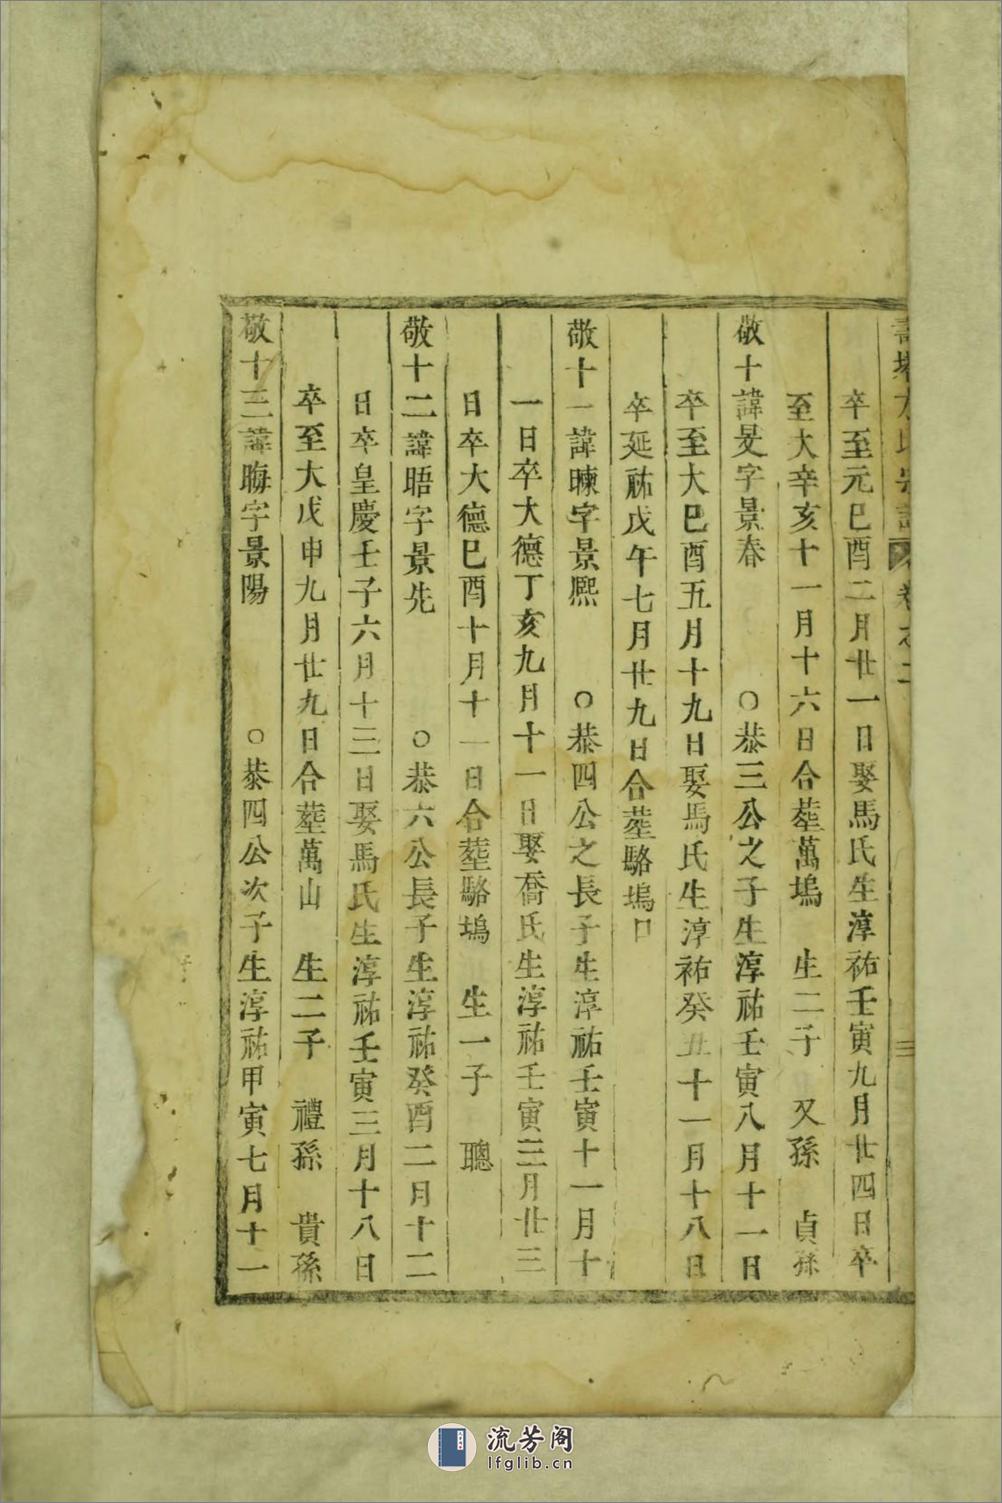 卷之二
三
卒至元己酉二月廿一日娶馬氏生淳祐壬寅九月廿四日卒
至大辛亥十一月十六日合塟萬塢 生二子 又孫 貞孫
敬十諱旻字景春 ○恭三公之子生淳祐壬寅八月十一日
卒至大巳酉五月十九日娶馬氏生淳祐癸丑十一月十八日
卒延祐戊午七月廿九日合塟駱塢口
敬十一諱暕字景熙 ○恭四公之長子生淳祐壬寅十一月十
一日卒大德丁亥九月十一日娶喬氏生淳祐壬寅三月廿三
日卒大德巳酉十月十一日合塟駱塢 生一子 聰
敬十二諱晤字景先 ○恭六公長子生淳祐癸酉二月十二
日卒皇慶壬子六月十三日娶馬氏生淳祐壬寅三月十八日
卒至大戊申九月廿九日合塟萬山 生二子 禮孫 貴孫
敬十三諱晦字景陽 ○恭四公次子生淳祐甲寅七月十一
流芳阁
lfglib.cn